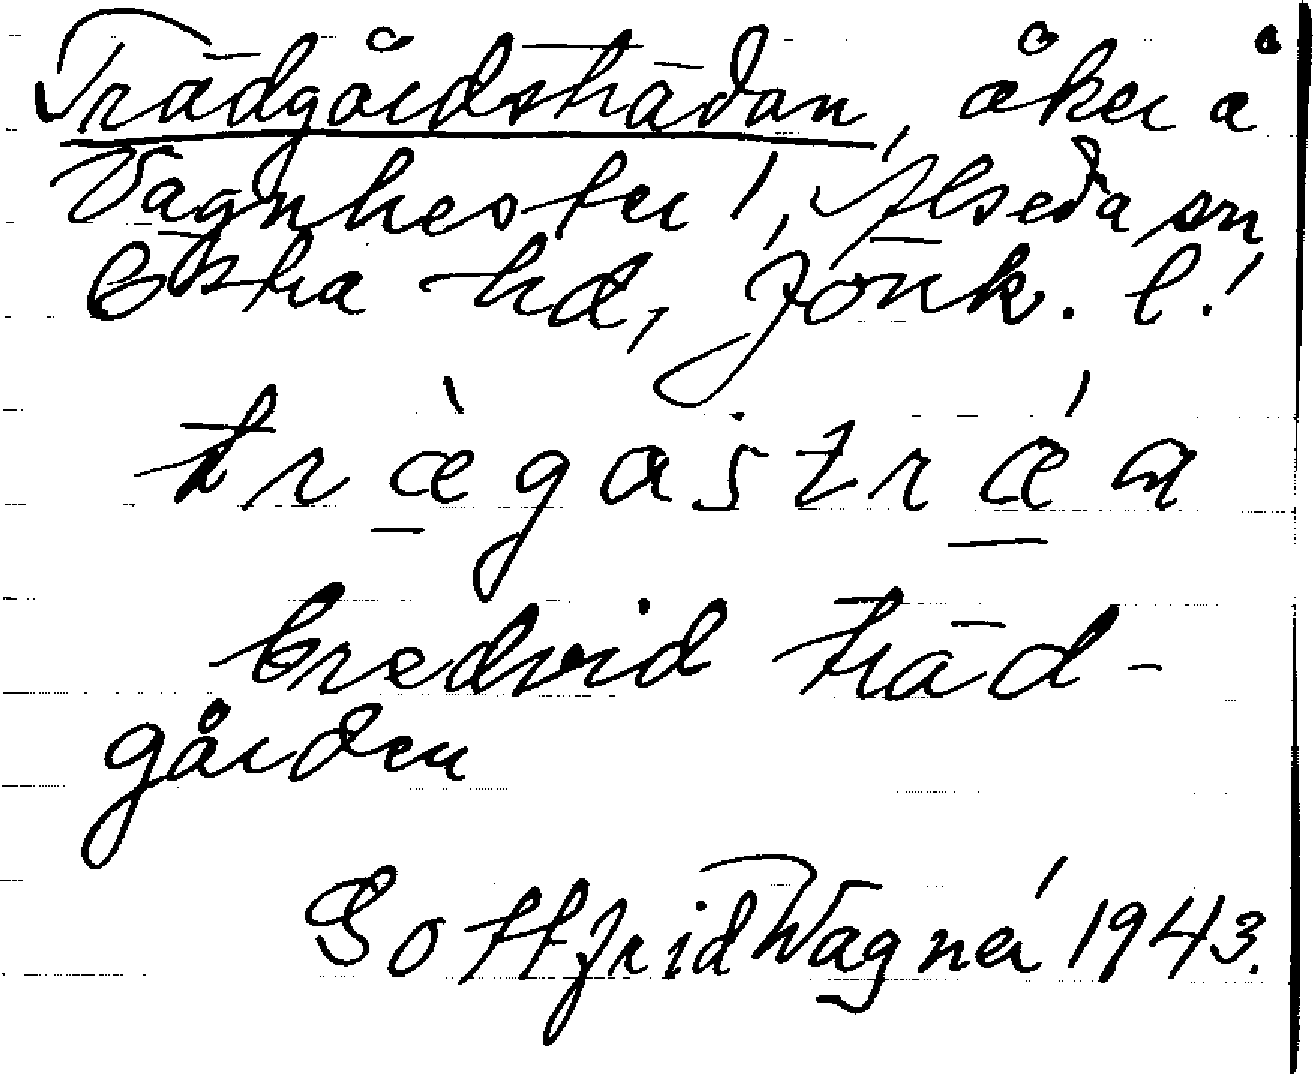 Trädgårdsträdan, åker å
Vagnhester, Alseda sn
Östra hd, Jönk. l.
trægastræa
bredvid träd-
gården
Gottfrid Wagnér 1943.